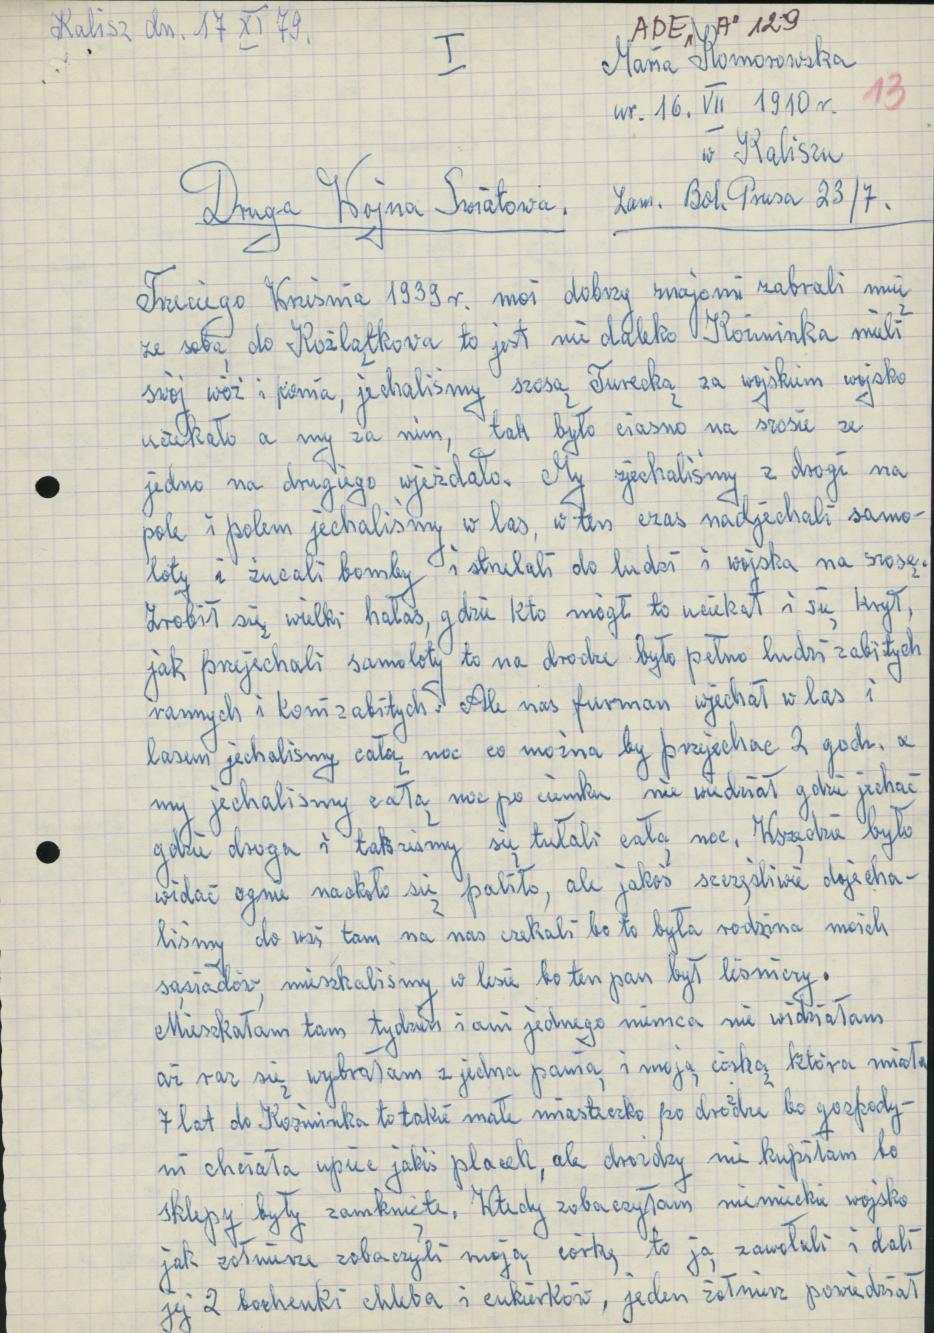 Kalisz dn. 17 XI 79.
ADE, A° 129
I
Maria Komorowska
13
ur. 16. VII 1910 r.
w Kaliszu
Druga Wojna Swiatowa. Zam. Bol. Prusa 23/7.
Trzeciego Września 1939 r. moi dobrzy znajomi zabrali mię
ze sobą do Koźlątkova to jest nie daleko Koźminka mieli
swój wóz i konia, jechaliśmy szosą Turecką za wojskiem wojsko
uciekało a my za nim, tak było ciasno na szosie ze
jedno na drugiego wjeżdało. My zjechaliśmy z drogi na
pole i polem jechaliśmy w las, w ten czas nadjechali samo-
loty i żucali bomby i strzelali do ludzi i wojska na szosę.
Zrobił się wielki hałas, gdzie kto mógł to uciekał i się krył,
jak przejechali samoloty to na drodze było pełno ludzi zabitych
rannych i koni zabitych. Ale nas furman wjechał w las i
lasem jechalismy całą noc co można by przejechac 2 godz. a
my jechalismy całą noc po ciemku nie wiedział gdzie jechać
gdzie droga i takżeśmy się tułali całą noc. Wszędzie było
widać ognie naokoło się paliło, ale jakoś szczęśliwie dojecha-
liśmy do wsi tam na nas czekali bo to była rodzina moich
sąsiadów, mieszkaliśmy w lesie bo ten pan był leśniczy.
Mieszkałam tam tydzień i ani jednego niemca nie widziałam
aż raz się wybrałam z jedna panią i moją córką która miała
7 lat do Koźminka to takie małe miasteczko po drożdze bo gospody-
ni chciała upiec jakiś placek, ale drożdzy nie kupiłam bo
sklepy były zamknięte. Wtedy zobaczyłam niemieckie wojsko
jak żołnierze zobaczyli moją córkę to ją zawołali i dali
jej 2 bochenki chleba i cukierków, jeden żołnierz powiedział